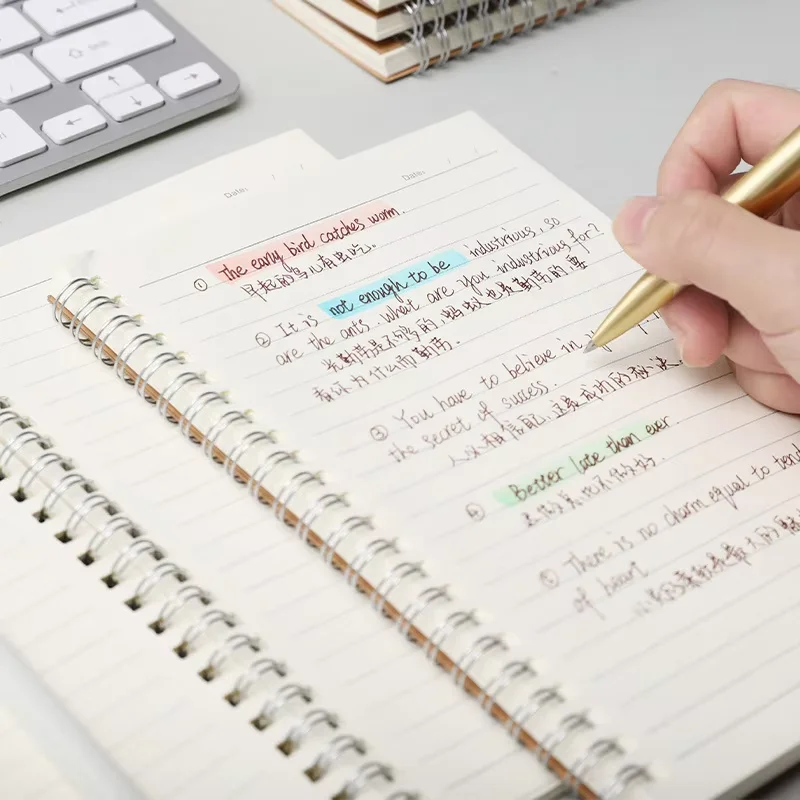 Date: / /
Date: / /
① The early bird catches worm.
早起的鸟儿有虫吃。
② It is not enough to be industrious, so
are the ants. What are You industrious for?
光勤劳是不够的,蚂蚁也是勤劳的.要
看你为什么而勤劳。
③ You have to believe in
the secret of success.
人必相信自己,这是成功的秘诀.
Better late than ever.
There is no charm equal to tend
of heart